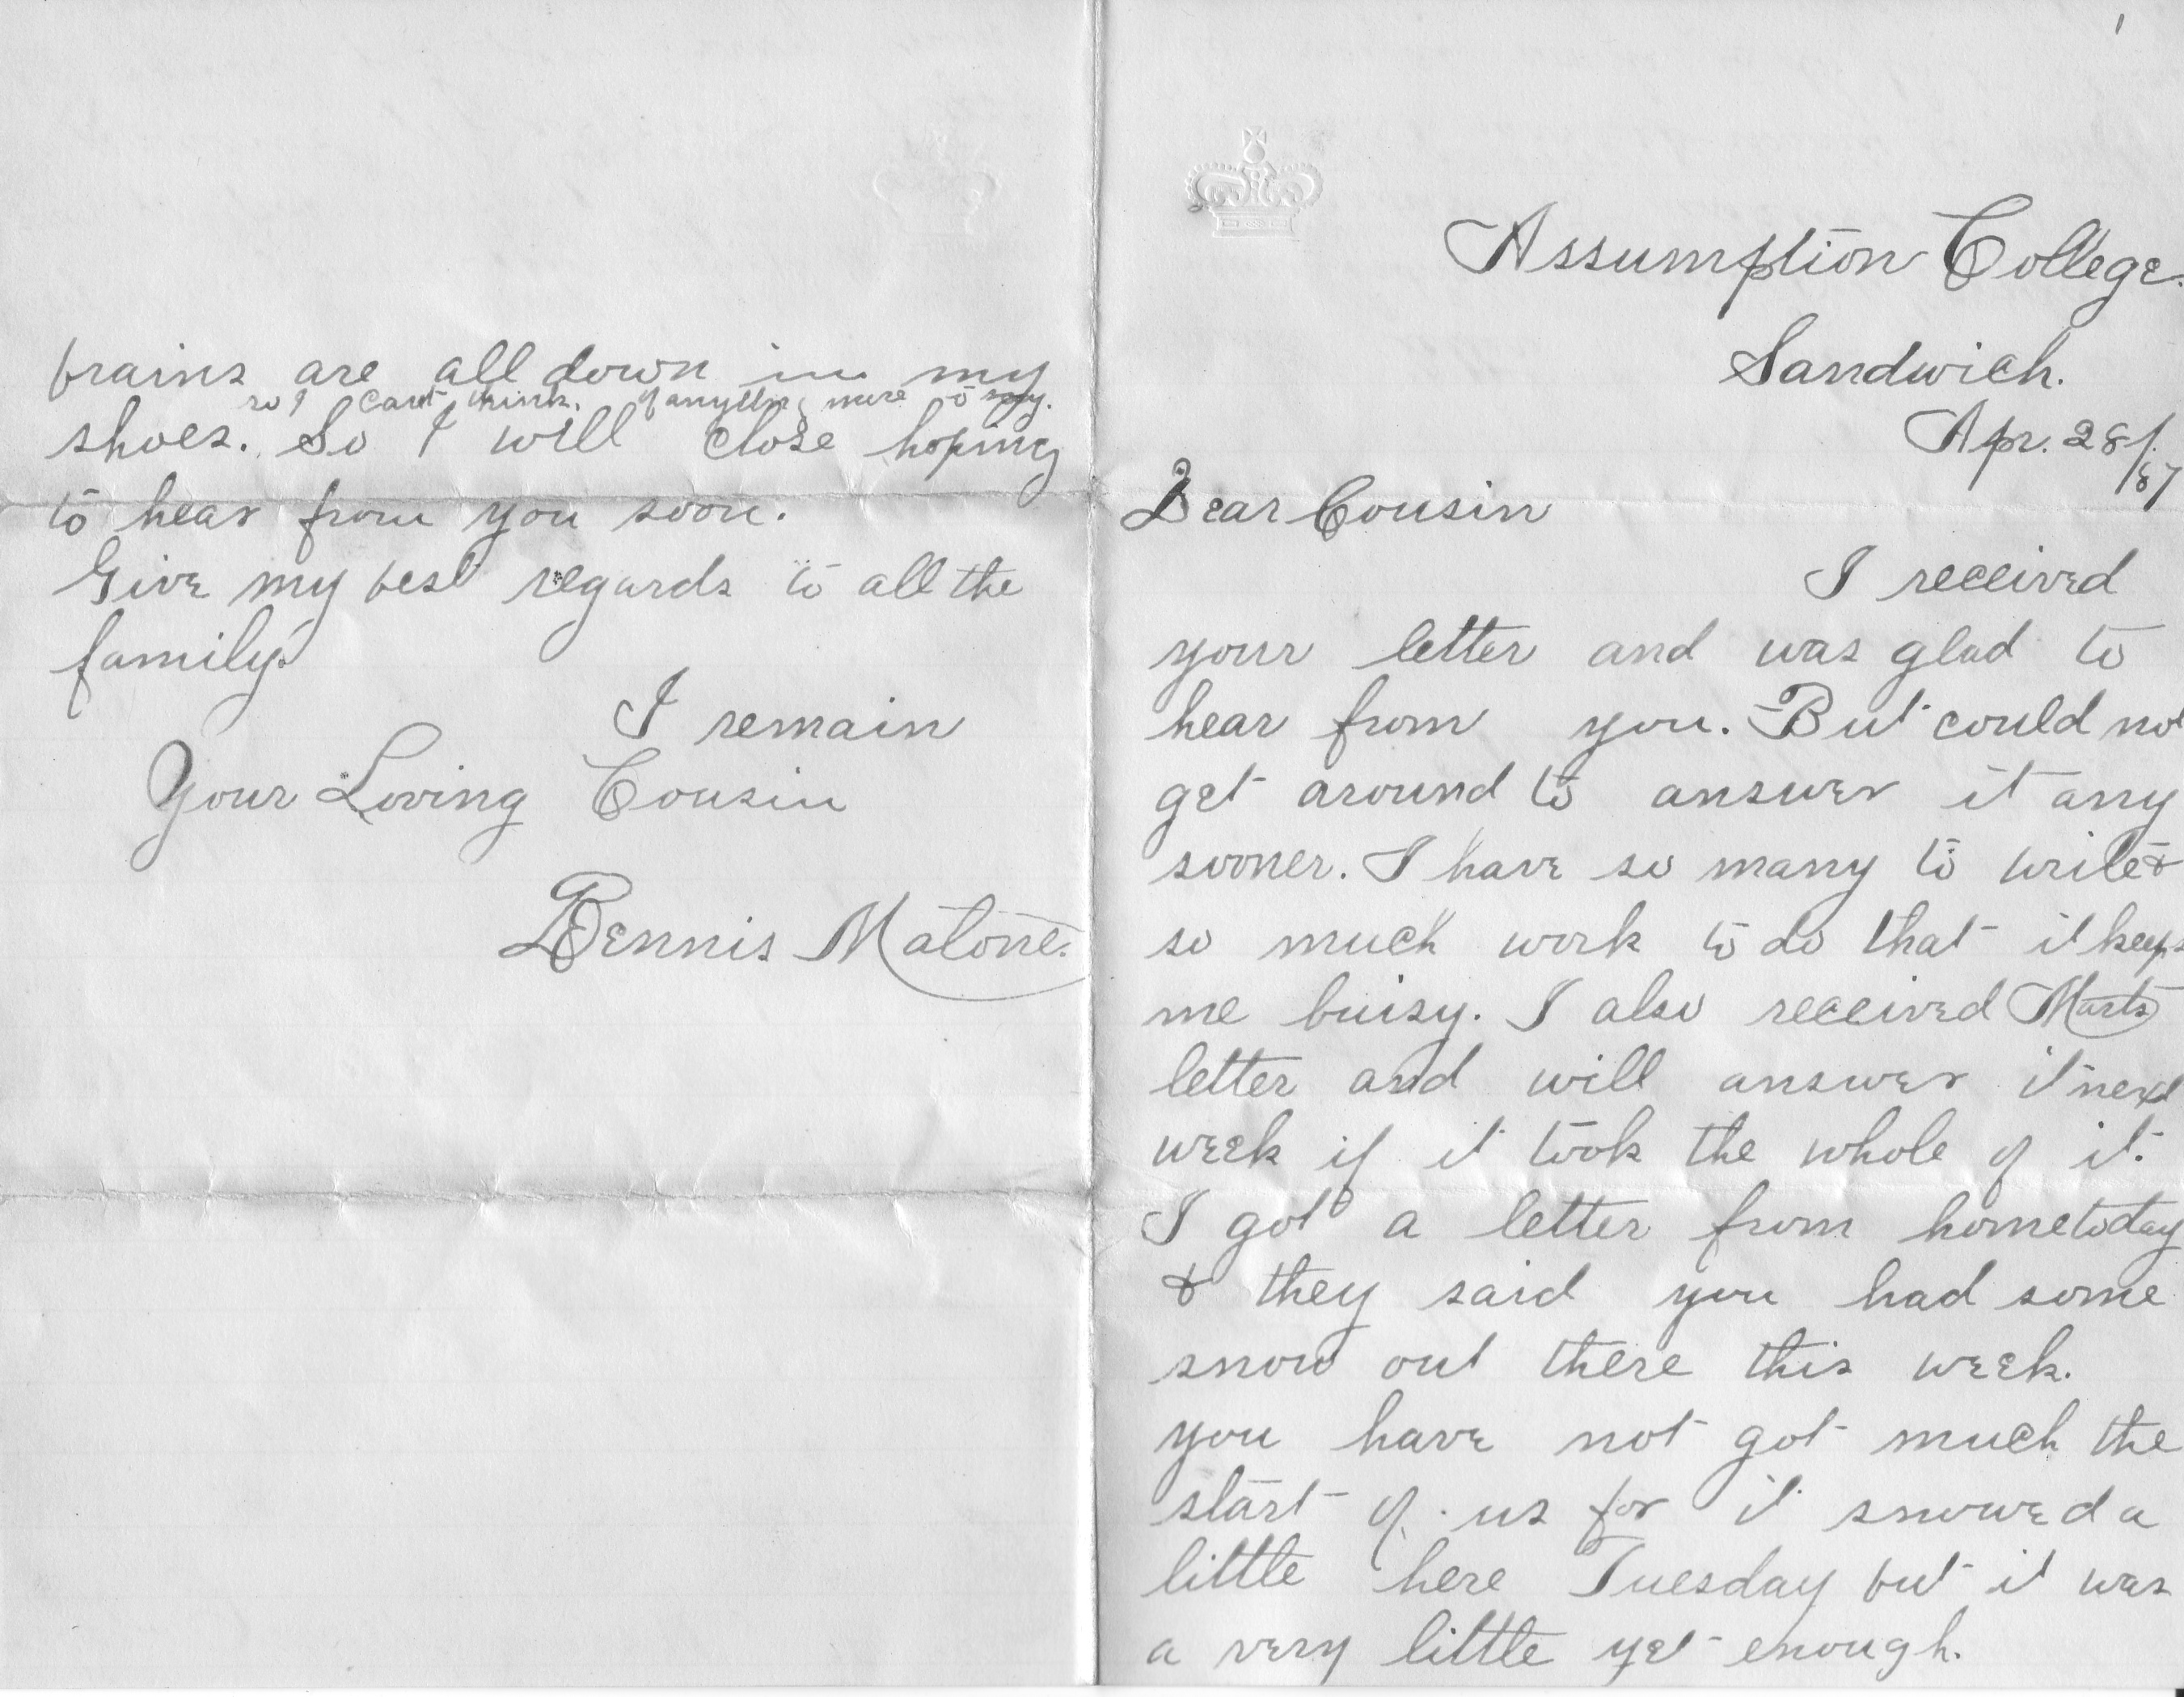 1
Assumption College.
Sandwich.
Apr. 28/87
Dear Cousin
I received
your letter and was glad to
hear from you. But could not
get around to answer it any
sooner. I have so many to write &
so much work to do that it keeps
me buisy. I also received Marts
letter and will answer it next
week if it took the whole of it.
I got a letter from home today
& they said you had some
snow out there this week.
you have not got much the
start of us for it snowed a
little here Tuesday but it was
a very little yet enough.
brains are all down in my
so I cant think of anything more to say.
shoes. So I will close hoping
to hear from you soon.
Give my best regards to all the
family.
I remain
Your Loving Cousin
Dennis Malone.